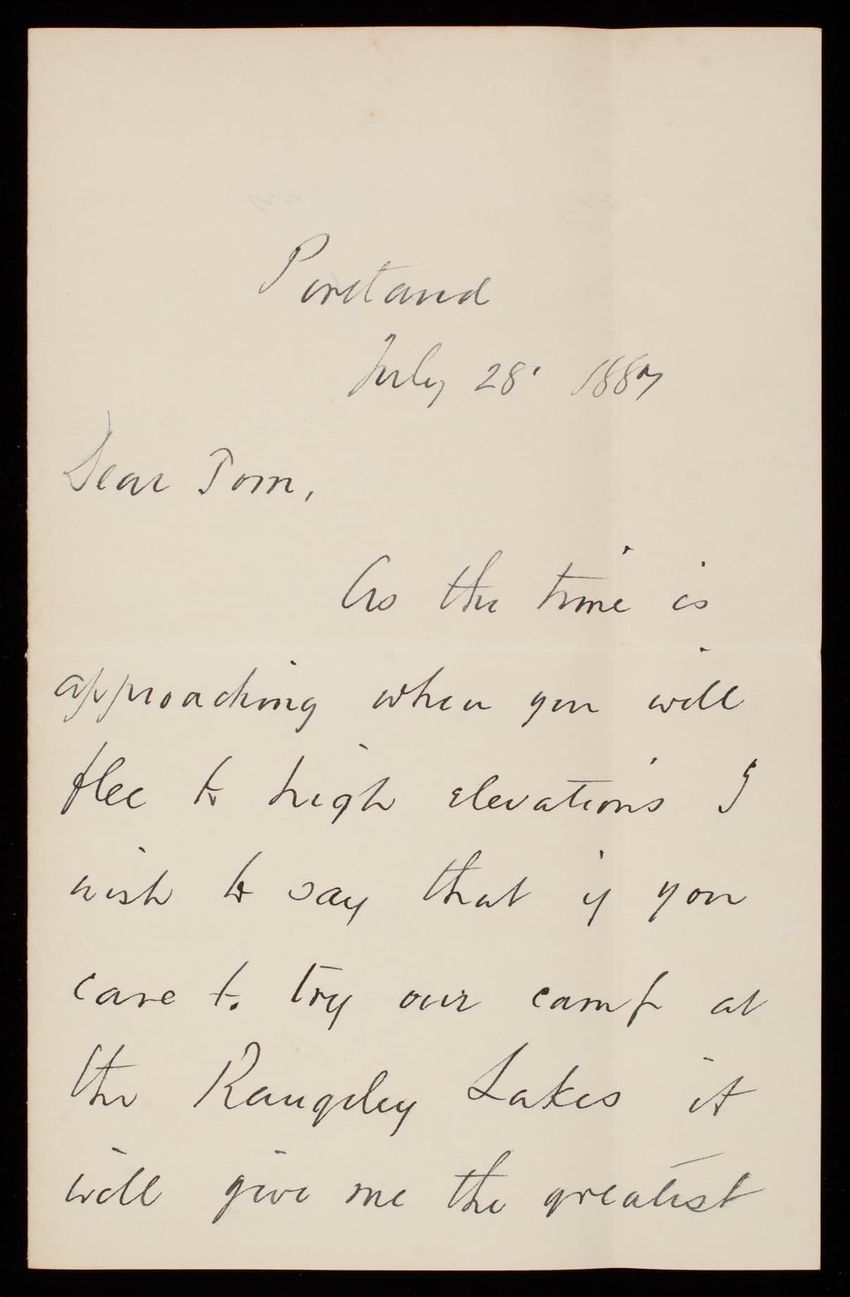 Portland
July 28' 1887
Dear Tom,
As the time is
approaching when you will
flee to high elevations I
wish to say that if you
care to try our camp at
the Rangeley Lakes it
will give me the greatest